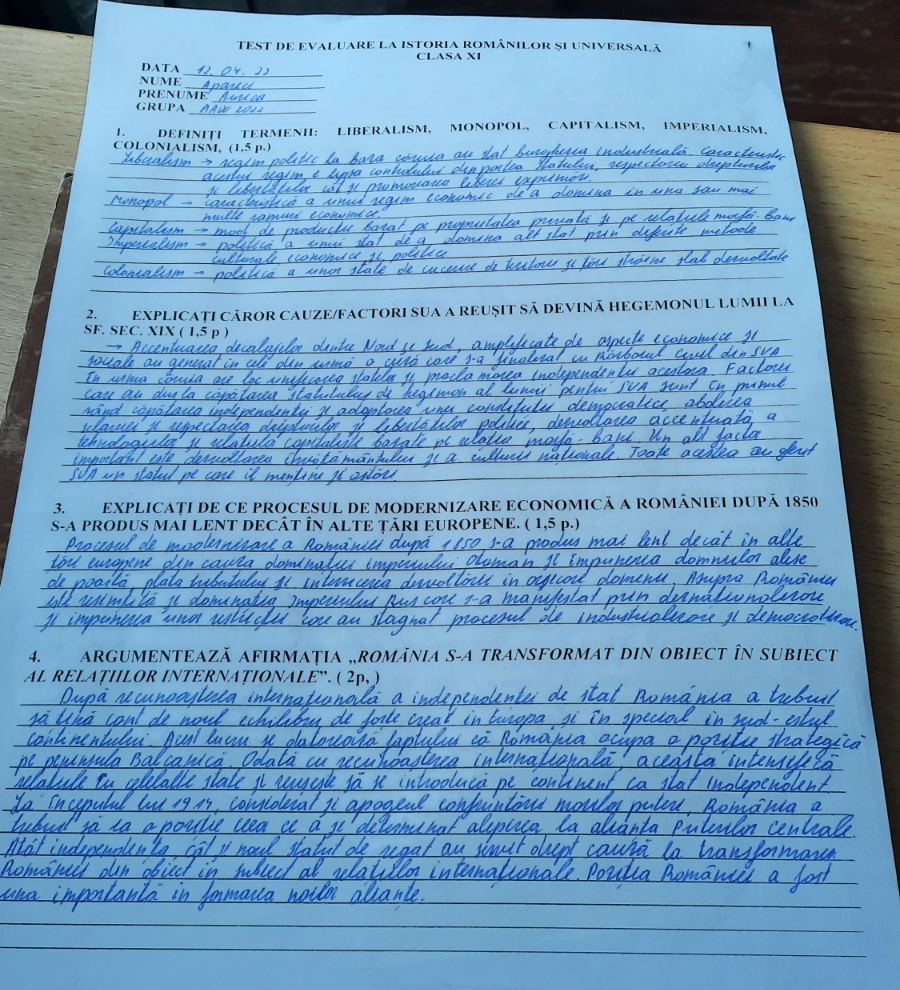 TEST DE EVALUARE LA ISTORIA ROMÂNILOR ȘI UNIVERSALĂ
CLASA XI
DATA 12.04.22
NUME
PRENUME Aurica
GRUPA AAW 2022
1. DEFINIȚI TERMENII: LIBERALISM, MONOPOL, CAPITALISM, IMPERIALISM,
COLONIALISM, (1,5 p.)
Liberalism → regim politic la baza căruia au stat burghezia industrială. Caracteristic
acestui regim, e lipsa controlului din partea statului, respectarea drepturilor
și libertăților cât și promovarea liberei exprimări.
Monopol – caracteristică a unui regim economic de a domina în una sau mai
multe ramuri economice.
Capitalism – mod de producție bazat pe proprietatea privată și pe relațiile marfă-bani
Imperialism – politică a unui stat de a domina alt stat prin diferite metode
culturale, economice și politice
Colonialism – politică a unor state de cucerire de teritorii și țări străine slab dezvoltate
2. EXPLICAȚI CĂROR CAUZE/FACTORI SUA A REUȘIT SĂ DEVINĂ HEGEMONUL LUMII LA
SF. SEC. XIX ( 1,5 p )
→ Accentuarea decalajelor dintre Nord și Sud, amplificate de aspecte economice și
sociale au generat în cele din urmă o criză care s-a finalizat cu Războiul Civil din SUA
În urma căruia are loc unificarea statelor și proclamarea independenței acestora. Factorii
care au dus la căpătarea statutului de hegemon al lumii pentru SUA sunt în primul
rând căpătarea independenței și adoptarea unei constituții democratice, abolirea
sclaviei și respectarea drepturilor și libertăților politice, dezvoltarea accentuată a
tehnologiilor și relațiile capitaliste bazate pe relația marfă-bani. Un alt factor
important este dezvoltarea învățământului și a culturii naționale. Toate acestea au oferit
SUA un statut pe care îl menține și astăzi.
3. EXPLICAȚI DE CE PROCESUL DE MODERNIZARE ECONOMICĂ A ROMÂNIEI DUPĂ 1850
S-A PRODUS MAI LENT DECÂT ÎN ALTE ȚĂRI EUROPENE. ( 1,5 p.)
Procesul de modernizare a României după 1850 s-a produs mai lent decât în alte
țări europene din cauza dominației imperiului Otoman și impunerea domnilor alese
de poartă, plata tributului și interzicerea dezvoltării în oricare domeniu. Asupra României
este resimțită și dominația Imperiului Rus care s-a manifestat prin deznaționalizare
și impunerea unor restricții care au stagnat procesul de industrializare și democratizare.
4. ARGUMENTEAZĂ AFIRMAȚIA „ROMÂNIA S-A TRANSFORMAT DIN OBIECT ÎN SUBIECT
AL RELAȚIILOR INTERNAȚIONALE”. ( 2p, )
După recunoașterea internațională a independenței de stat România a trebuit
să țină cont de noul echilibru de forțe creat în Europa și în special în sud-estul
continentului. Acest lucru se datorează faptului că România ocupa o poziție strategică
pe peninsula Balcanică. Odată cu recunoașterea internațională, aceasta intensifică
relațiile cu celelalte state și reușește să se introducă pe continent ca stat independent.
La începutul lui 1914, considerat și apogeul confruntării marilor puteri, România a
trebuit să ia o poziție ceea ce a și determinat alipirea la alianța Puterilor Centrale.
Atât independența cât și noul statut de regat au servit drept cauză la transformarea
României din obiect în subiect al relațiilor internaționale. Poziția României a fost
una importantă în formarea noilor alianțe.